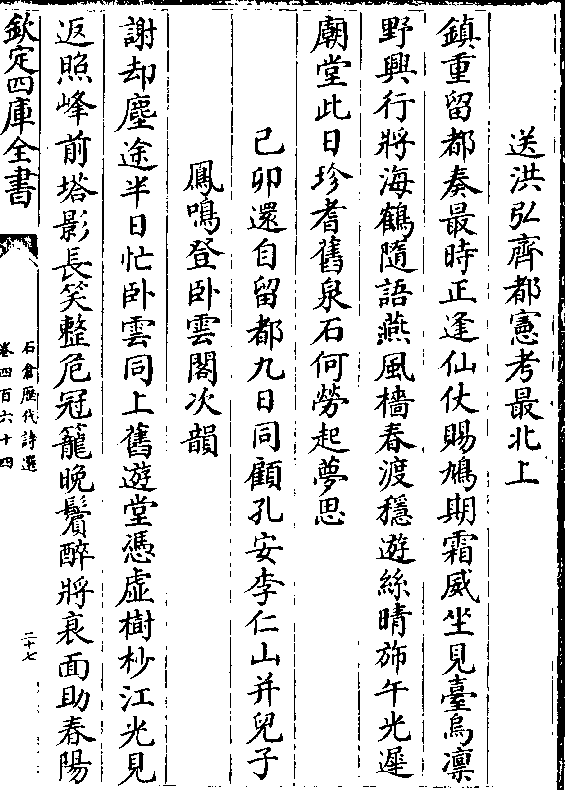 送洪弘齊都憲考最北上
鎮重留都奏最時正逢仙仗賜鳩期霜威坐見臺烏凜
野興行將海鶴隨語燕風檣春渡穩遊絲晴斾午光遲
廟堂此日珍耆舊泉石何勞起夢思
己卯還自留都九日同顧孔安李仁山并兒子
鳳鳴登卧雲閣次韻
謝却塵途半日忙卧雲同上舊遊堂憑虛樹杪江光見
返照峰前塔影長笑整危冠籠晩鬢醉將衰面助春陽
欽定四庫全書
石倉歴代詩選
卷四百六十四
二十七